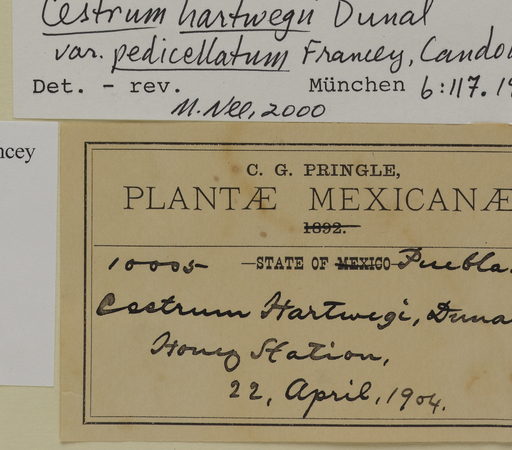 Cestrum hartwegii Dunal
var. pedicellatum Francey, Cando
Det. - rev. München 6:117. 19
M. Nee, 2000
ncey
C. G. PRINGLE,
PLANTÆ MEXICANÆ
1892.
10005 —STATE OF MEXICO— Puebla.
Cestrum Hartwegi, Duna
Honey Station,
22, April, 1904.